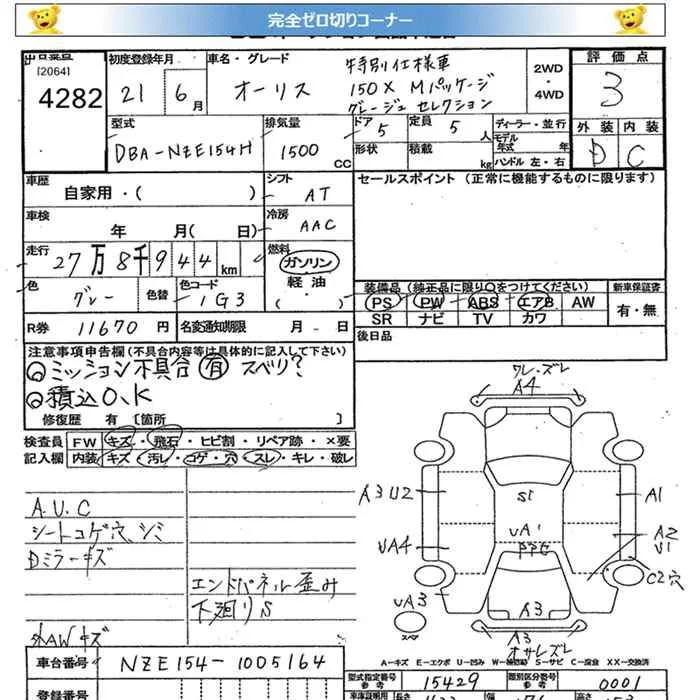 完全ゼロ切りコーナー
[2064]
4282
初度登録年月
21 6月
車名・グレード
オーリス
特別仕様車
150X Mパッケージ
グレージュ セレクション
2WD
・4WD
評価点
3
外装 内装
D C
型式
DBA-NZE154H
排気量
1500 CC
ドア 5
定員 5 人
ディーラー・並行
モデル年式 年
形状
積載 kg
ハンドル 左・右
車歴
自家用・( )
シフト
AT
セールスポイント (正常に機能するものに限ります)
車検
年 月( 日)
冷房
AAC
走行
27万8千944km
燃料
ガソリン
軽油
・( )
色
グレー
色替
色コード
1G3
装備品 (純正品に限り○をつけてください) 新車保証書
PS PW ABS エアB AW
有・無
SR ナビ TV カワ
R券 11670 円
名変通知期限 月 日
後日品
注意事項申告欄(不具合内容等は具体的に記入して下さい)
ミッション不具合 有 スベリ?
積込O.K
修復歴 有 〔箇所 〕
検査員 FW キズ・飛石・ヒビ割・リペア跡・×要
記入欄 内装 キズ・汚レ・コゲ・穴・スレ・キレ・破レ
A.U.C
シートコゲ穴、シミ
Dミラーキズ
エンドパネル歪み
下廻りS
外AWキズ
ワレ・ズレ
A4
A3 U2
S1
A1
UA4
UA1
A2
U1
C2穴
UA3
スペア
A3
A3
オサレズレ
A-キズ E-エクボ U-凹み S-サビ C-腐食 XX-交換済
車台番号 NZE154-1005164
型式指定番号 参考 15429
類別区分番号 参考 0001
登録番号